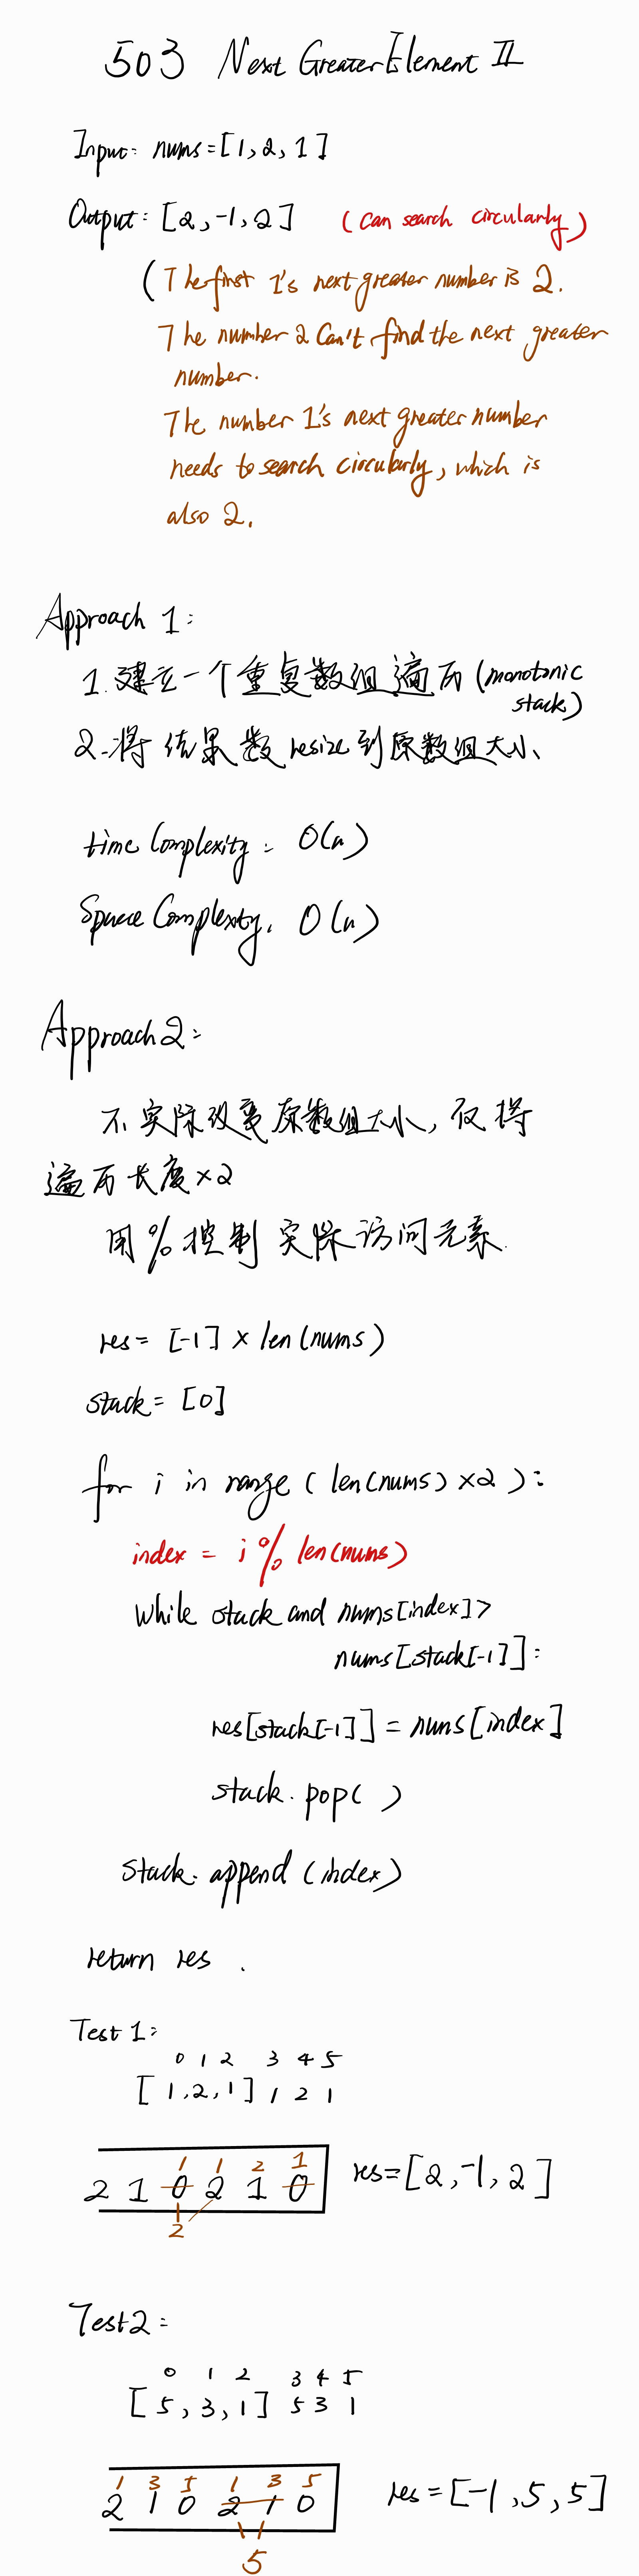 503 Next Greater Element II
Input: nums=[1,2,1]
Output: [2,-1,2] (can search circularly)
(The first 1's next greater number is 2.
The number 2 Can't find the next greater
number.
The number 1's next greater number
needs to search circularly, which is
also 2.
Approach 1:
1.建立一个重复数组遍历(monotonic
stack)
2.将结果数resize到原数组大小、
time Complexity: O(n)
Space Complexity. O(n)
Approach 2:
不实际改变原数组大小,仅将
遍历长度×2
用%控制实际访问元素.
res= [-1] × len(nums)
stack= [0]
for i in range ( len(nums) ×2 ):
index = i % len(nums)
While stack and nums[index]>
nums[stack[-1]]:
res[stack[-1]] = nums[index]
stack.pop( )
stack.append (index)
return res .
Test 1:
0 1 2 3 4 5
[ 1,2,1] 1 2 1
1 1 2 1
2 1 0 2 1 0 res=[2,-1,2]
2
Test2:
0 1 2 3 4 5
[ 5,3,1] 5 3 1
1 3 5 1 3 5
2 1 0 2 1 0 res=[-1,5,5]
5